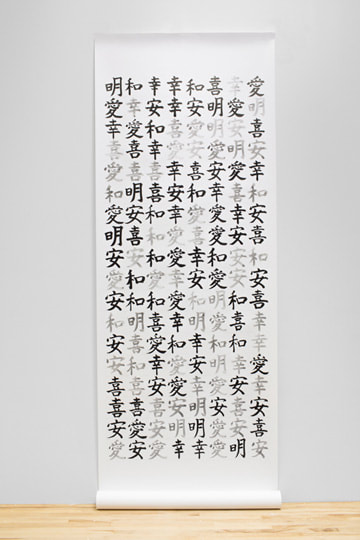 明和幸幸和喜幸愛
愛幸安幸安明愛明
幸愛和愛愛喜安喜
喜喜幸喜安愛明安
愛喜喜幸安安愛幸
和明和安喜愛喜和
愛安安幸愛愛幸安
明喜和愛喜和安喜
安幸和喜幸愛安喜
愛和安愛安和愛安
安和和愛喜明和喜
和明喜幸明愛喜幸
安喜愛和幸和和幸
安和幸喜安明愛愛
喜愛安愛幸愛喜喜
喜安喜安明安幸安
安愛幸明明幸安喜
愛安愛幸明愛明愛